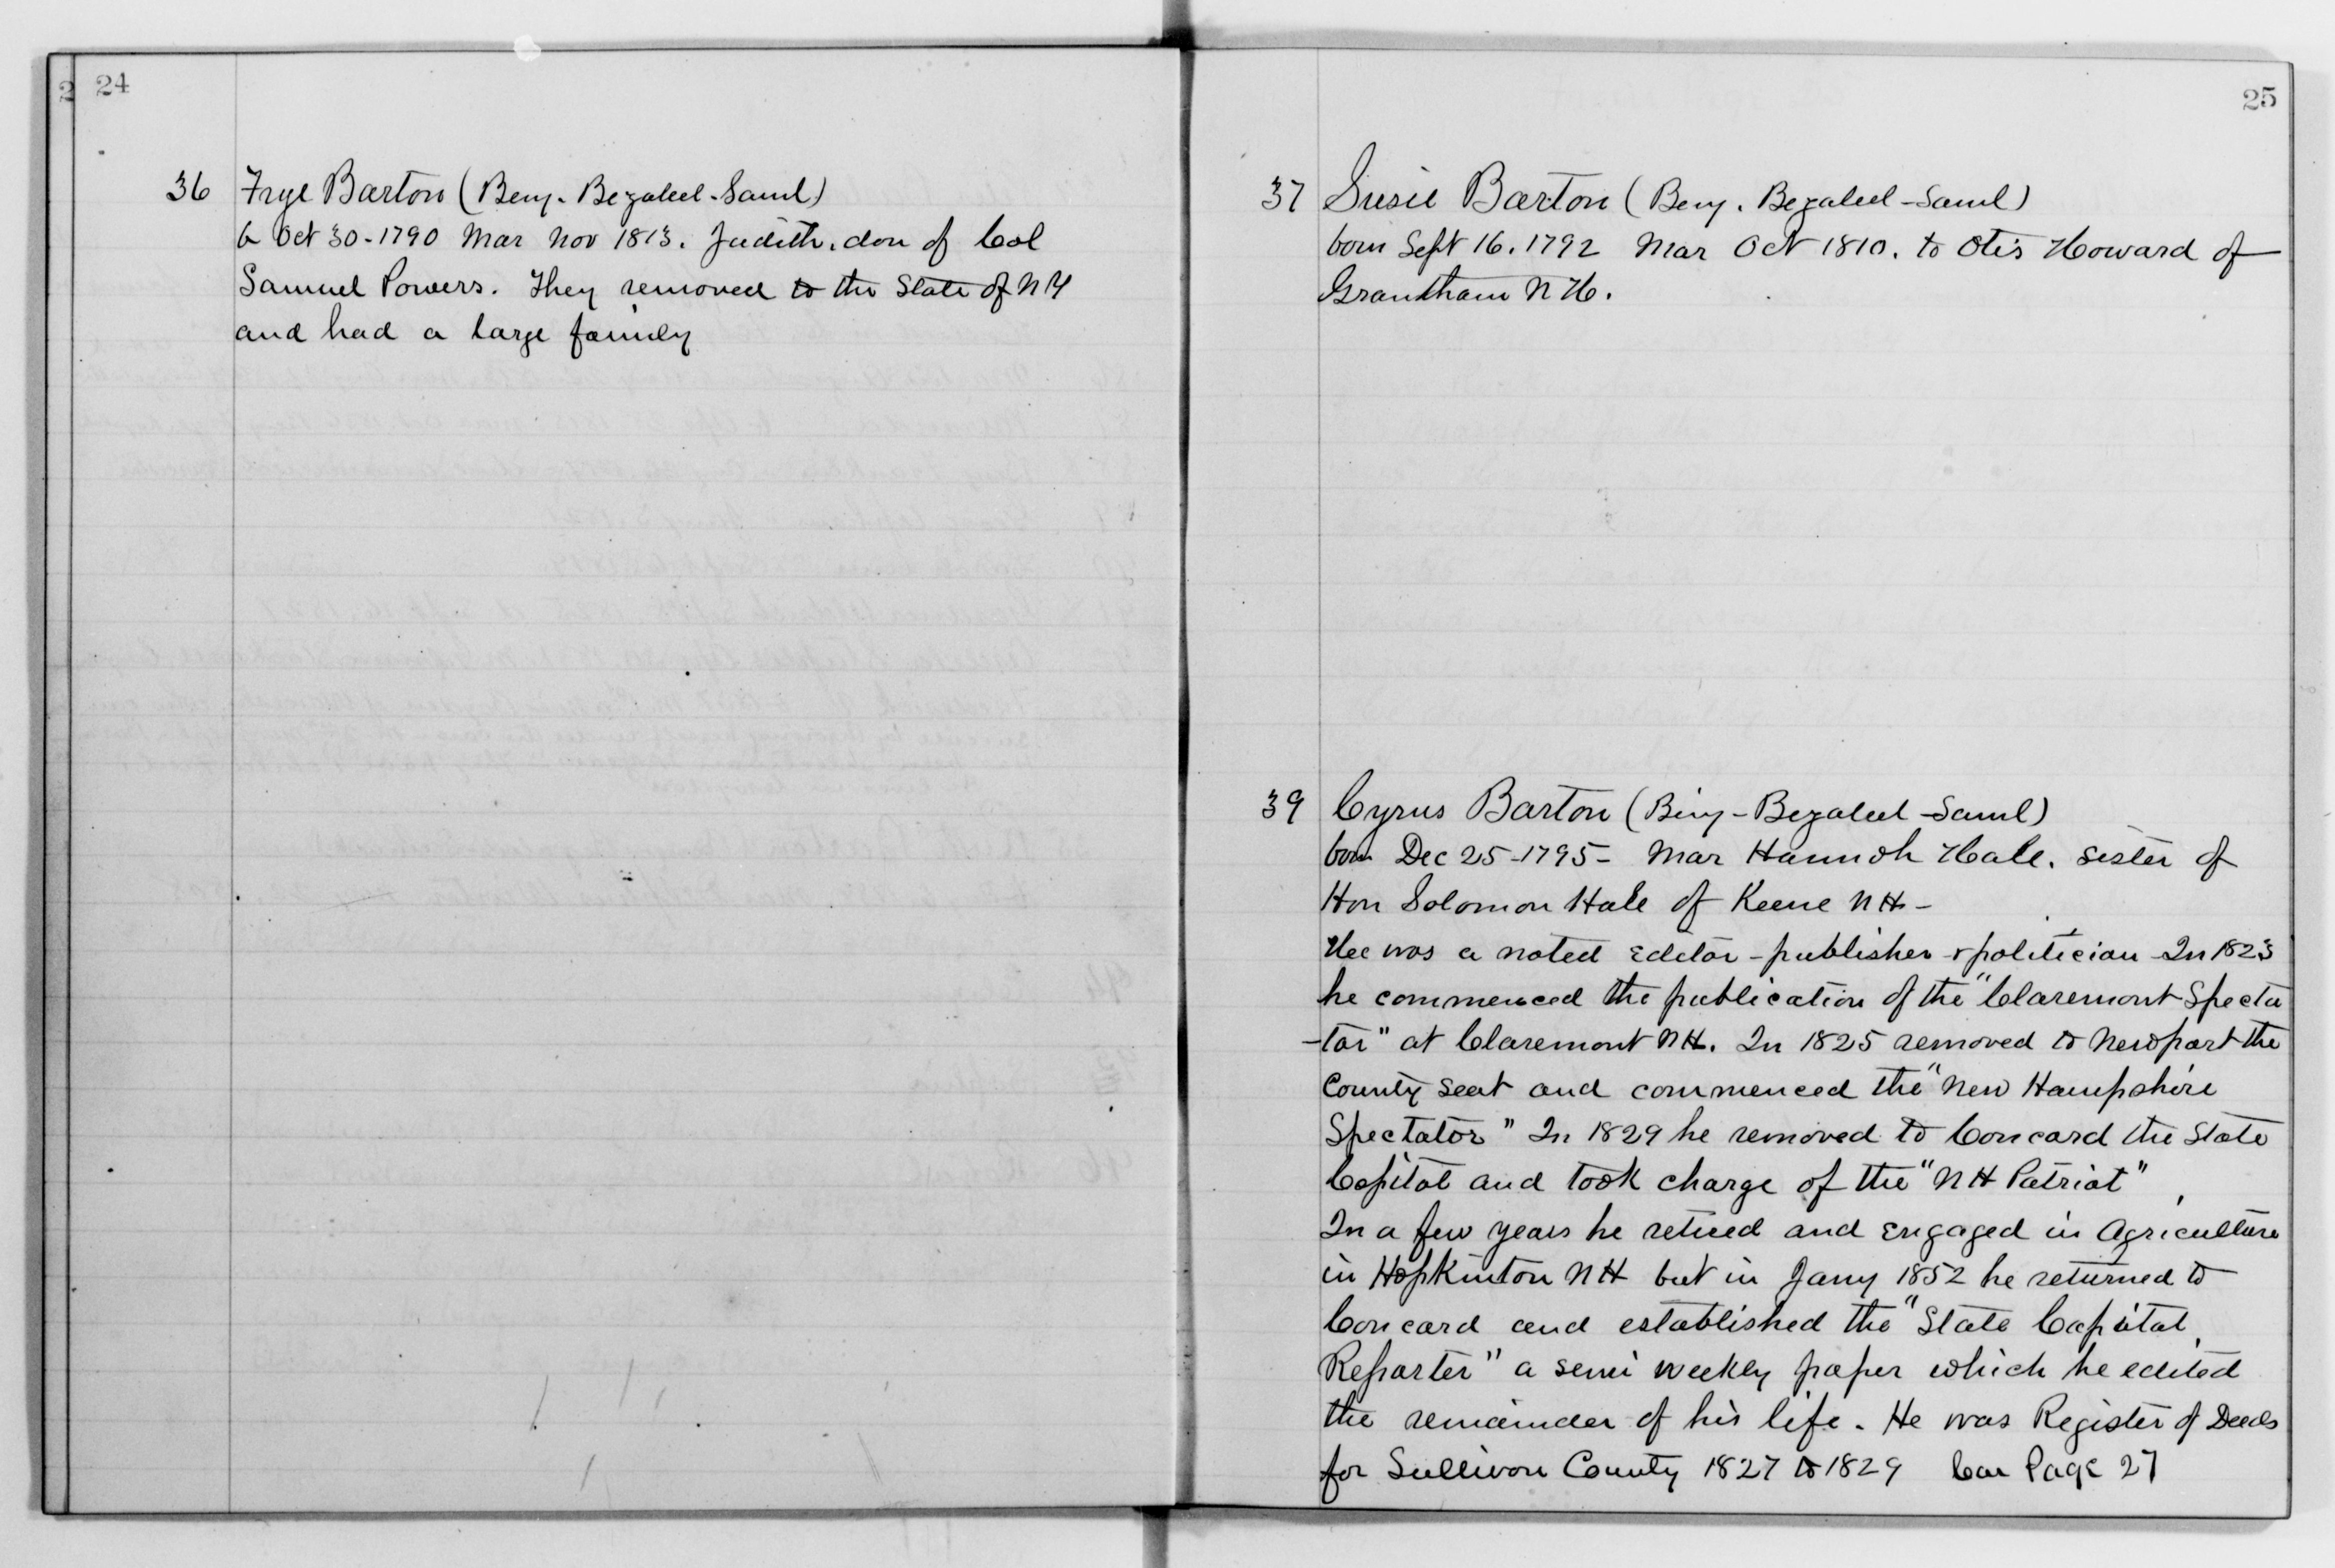 24
36 Frye Barton (Benj. Bezaleel-Saml)
b Oct 30-1790 Mar Nov 1813. Judith. dau of Col
Samuel Powers. They removed to the State of NY
and had a large family
25
37 Susie Barton (Benj. Bezaleel-Saml)
born Sept 16. 1792 Mar Oct 1810. to Otis Howard of
Grantham N H.
39 Cyrus Barton (Benj-Bezaleel-Saml)
born Dec 25-1795- Mar Hannah Hale. sister of
Hon Solomon Hale of Keene NH-
Hee was a noted Editor-publisher & politician-In 1823
he commenced the publication of the "Claremont Specta
-tor" at Claremont NH. In 1825 removed to Newport the
County seat and commenced the "New Hampshire
Spectator" In 1829 he removed to Concord the State
Capital and took charge of the "NH Patriot"
In a few years he retired and engaged in Agriculture
in Hopkinton NH but in Jany 1852 he returned to
Concord and established the "State Capital
Reporter" a semi weekly paper which he edited
the remainder of his life. He was Register of Deeds
for Sullivan County 1827 to 1829 Con Page 27